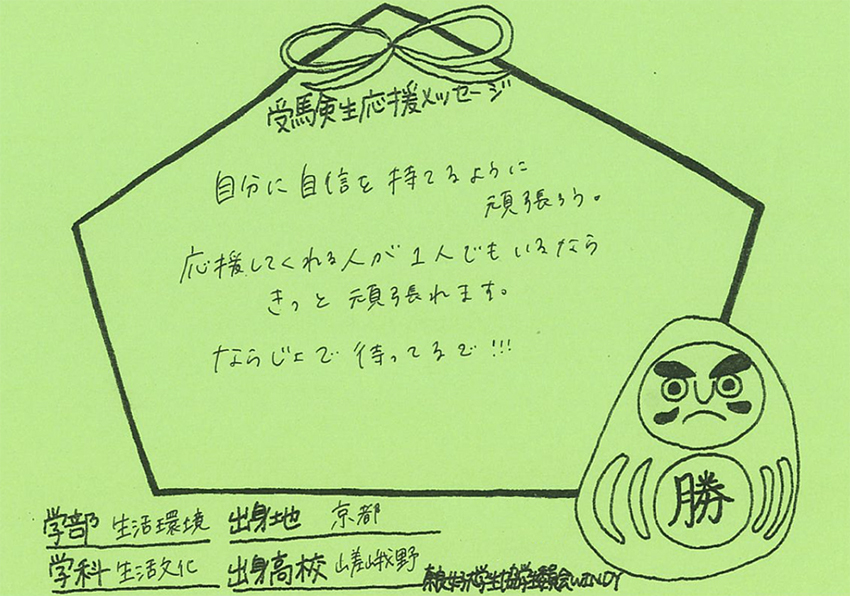 受験生応援メッセージ
自分に自信を持てるように
頑張ろう。
応援してくれる人が1人でもいるなら
きっと頑張れます。
ならじょで待ってるで!!!
勝
学部 生活環境 出身地 京都
学科 生活文化 出身高校 嵯峨野
奈良女子大学生協学生委員会WINDY